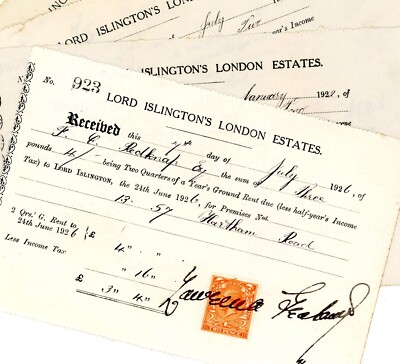 July Two
LORD ISLINGTON'S LONDON ESTATES.
January 1928, of
Two
No. 923
LORD ISLINGTON'S LONDON ESTATES.
Received this 7th day of July 1926, of
F. C. Redknap Esq the sum of Three
pounds 4/- being Two Quarters of a Year's Ground Rent due (less half-year's Income
Tax) to LORD ISLINGTON, the 24th June 1926, for Premises Nos.
13 . 57 Hartham Road
2 Qrs.' G. Rent to
24th June 1926 £ 4 " "
Less Income Tax " 16 "
£ 3 4 "
Lawrence